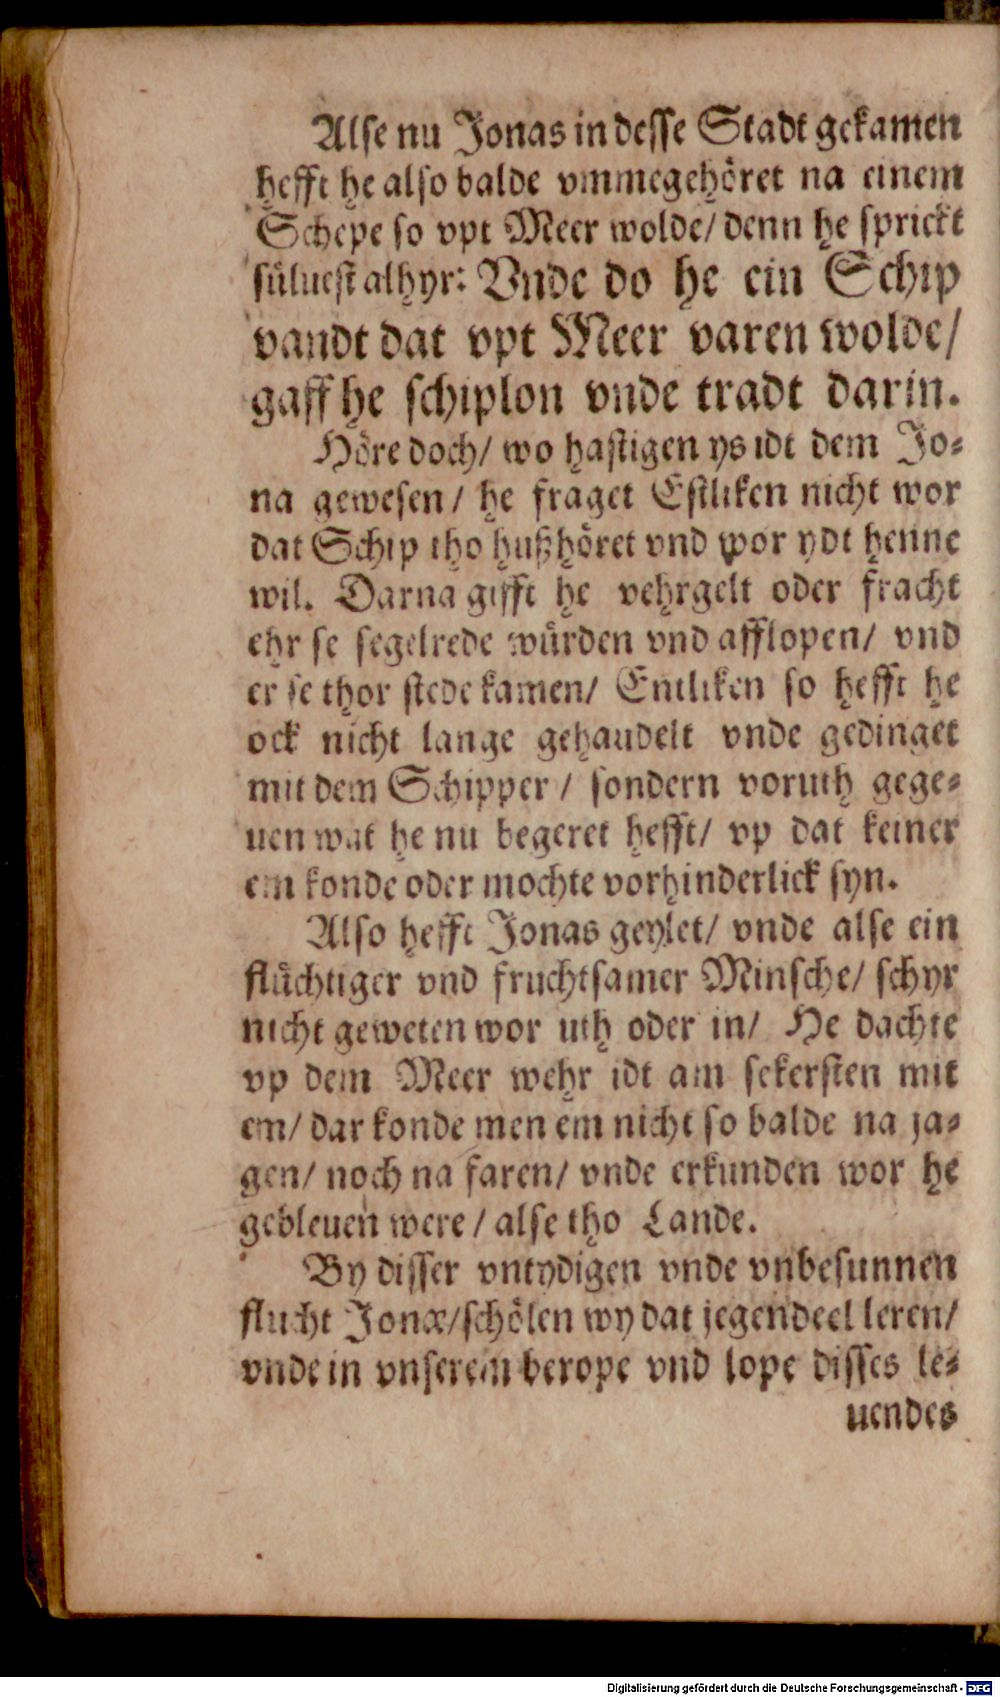 Alse nu Jonas in desse Stadt gekamen
hefft he also balde vmmegehöret na einem
Schepe so vpt Meer wolde/ denn he sprickt
süluest alhyr: Vnde do he ein Schip
vandt dat vpt Meer varen wolde/
gaff he schiplon vnde tradt darin.
Höre doch/ wo hastigen ys idt dem Jo-
na gewesen/ he fraget Estliken nicht wor
dat Schip tho hußhöret vnd wor ydt henne
wil. Darna gifft he vehrgelt oder fracht
ehr se segelrede würden vnd afflopen/ vnd
er se thor stede kamen/ Entliken so hefft he
ock nicht lange gehandelt vnde gedinget
mit dem Schipper/ sondern voruth gege-
uen wat he nu begeret hefft/ vp dat keiner
em konde oder mochte vorhinderlick syn.
Also hefft Jonas geylet/ vnde alse ein
flüchtiger vnd fruchtsamer Minsche/ schyr
nicht geweten wor uth oder in/ He dachte
vp dem Meer wehr idt am sekersten mit
em/ dar konde men em nicht so balde na ja-
gen/ noch na faren/ vnde erkunden wor he
gebleuen were/ alse tho Lande.
By disser vntydigen vnde vnbesunnen
flucht Jonæ/ schölen wy dat jegendeel leren/
vnde in vnserem berope vnd lope disses le-
uendes
Digitalisierung gefördert durch die Deutsche Forschungsgemeinschaft - DFG